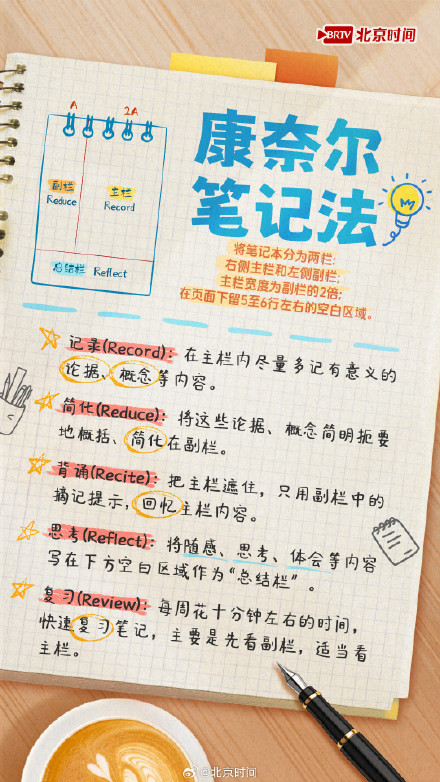 BRTV 北京时间
A 2A
副栏
Reduce
主栏
Record
总结栏 Reflect
康奈尔
笔记法
将笔记本分为两栏:
右侧主栏和左侧副栏;
主栏宽度为副栏的2倍;
在页面下留5至6行左右的空白区域。
记录(Record): 在主栏内尽量多记有意义的
论据、概念等内容。
简化(Reduce): 将这些论据、概念简明扼要
地概括、简化在副栏。
背诵(Recite): 把主栏遮住,只用副栏中的
摘记提示,回忆主栏内容。
思考(Reflect): 将随感、思考、体会等内容
写在下方空白区域作为“总结栏”。
复习(Review): 每周花十分钟左右的时间,
快速复习笔记,主要是先看副栏,适当看
主栏。
@北京时间